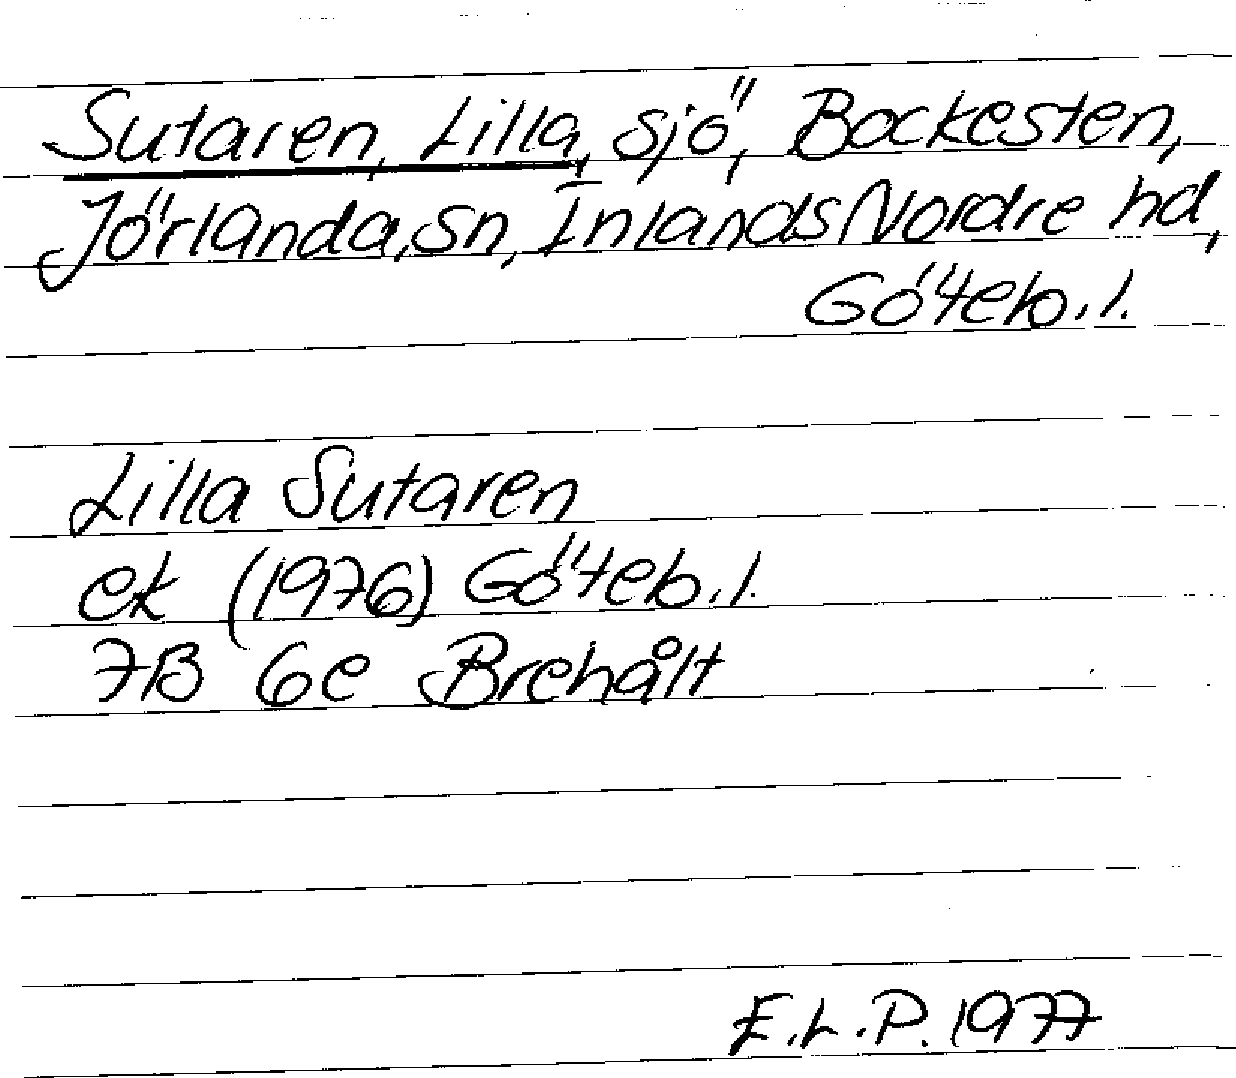 Sutaren, Lilla, sjö, Bockesten,
Jörlanda, sn, Inlands Nordre hd,
Göteb.l.
Lilla Sutaren
ek (1976) Göteb.l.
7B 6e Brehålt
E.L.P. 1977